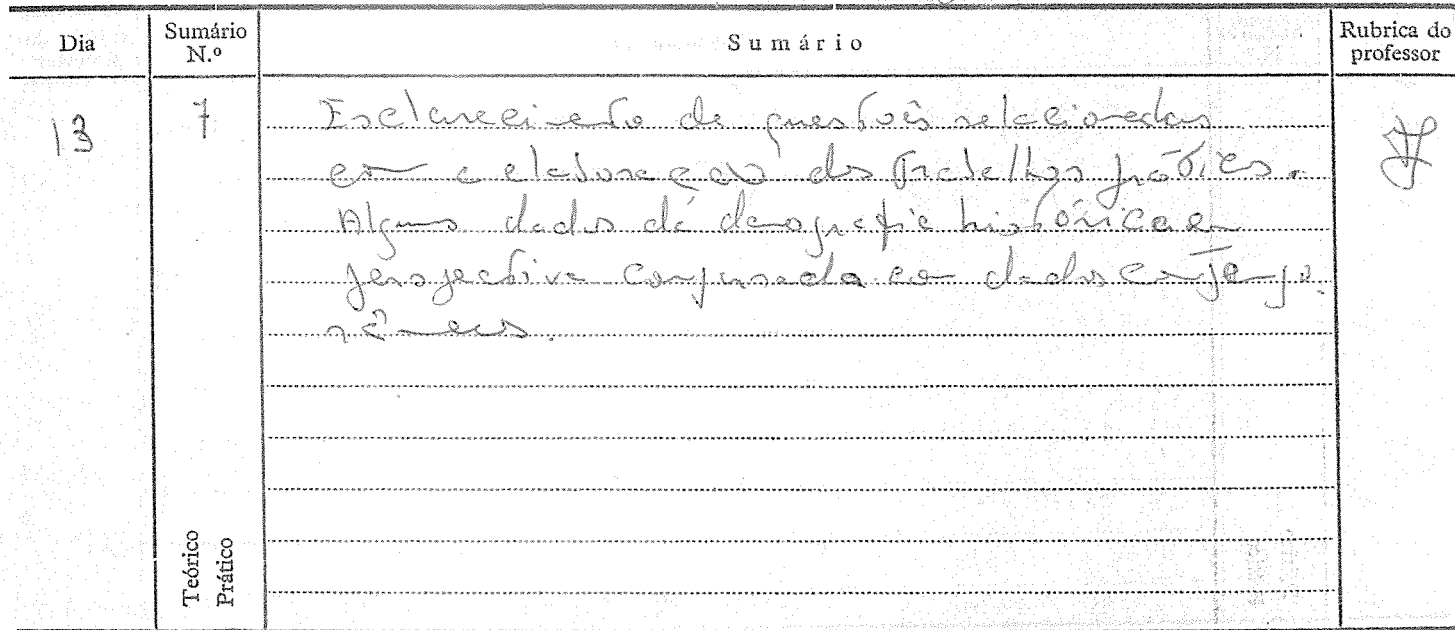 Dia Sumário N.º Sumário Rubrica do professor
13 7 Esclarecimento de questões relacionadas
com a elaboração dos trabalhos práticos.
Alguns dados de demografia histórica em
perspectiva comparada com dados contempo-
râneos.
Teórico
Prático